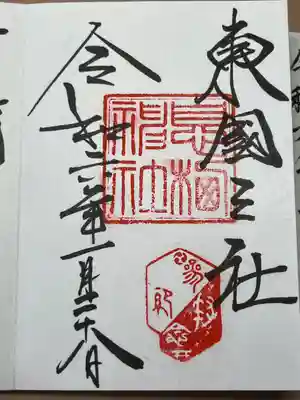 東國三社
息栖
神社
令和六年一月二十八日